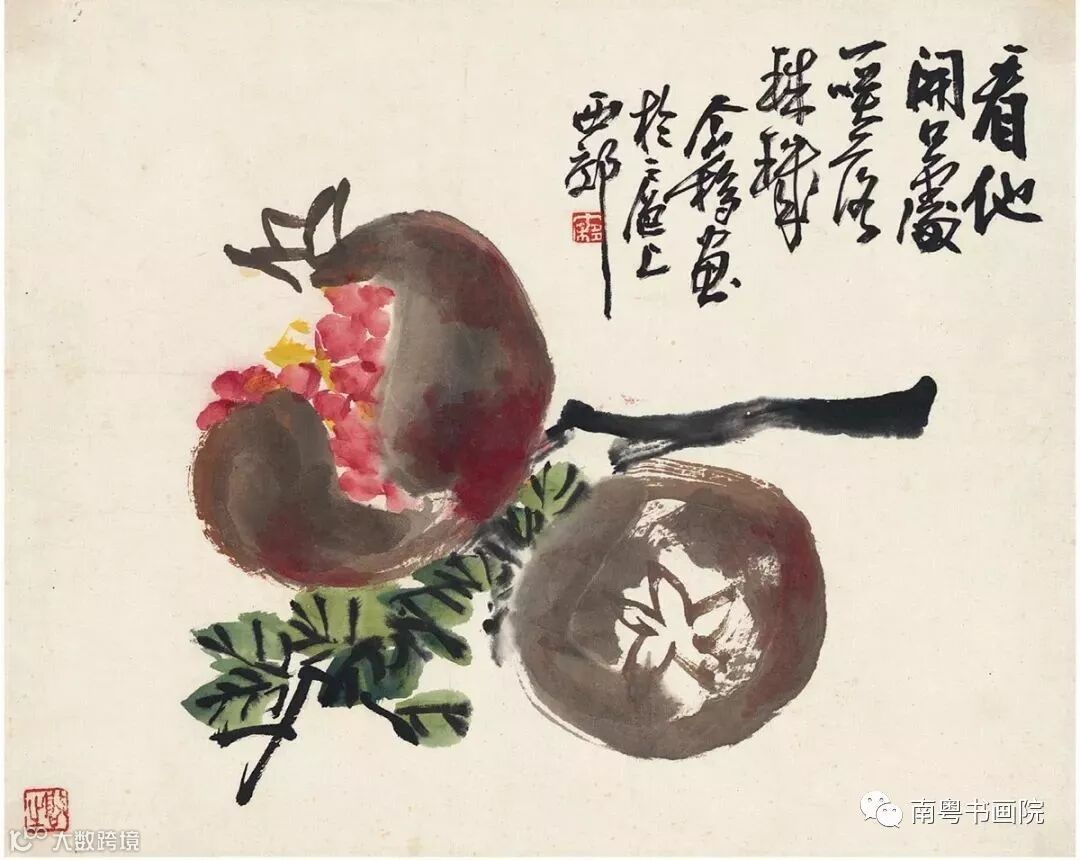 看他
開口處
一咲落
珠璣
畫
於滬上
西郊
南粤书画院
大数跨境